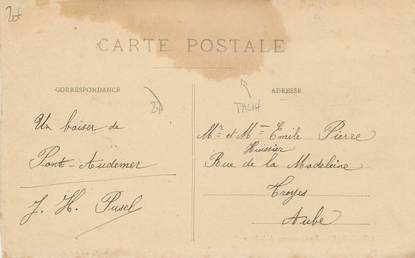 CARTE POSTALE
CORRESPONDANCE
Un baiser de
Pont-Audemer
J. H. Pusel
ADRESSE
Mr et Mme Emile Pierre
Huissier
Rue de la Madeleine
Troyes
Aube